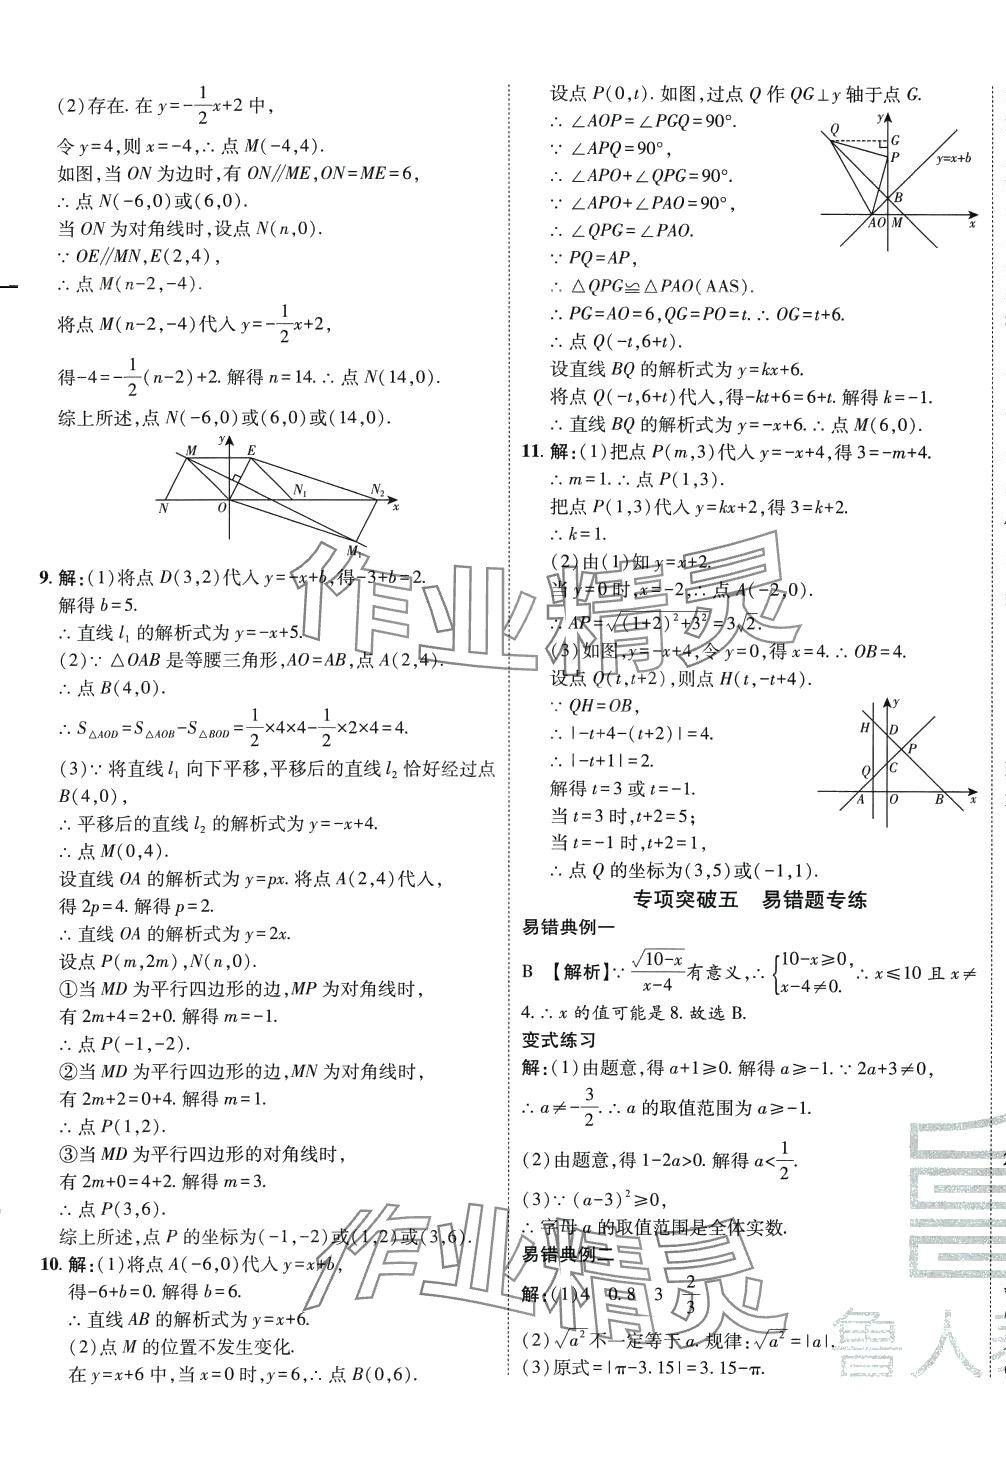 (2)存在. 在 y=-1/2x+2 中,
令 y=4,则 x=-4,∴ 点 M(-4,4).
如图,当 ON 为边时,有 ON∥ME,ON=ME=6,
∴ 点 N(-6,0)或(6,0).
当 ON 为对角线时,设点 N(n,0).
∵ OE∥MN,E(2,4),
∴ 点 M(n-2,-4).
将点 M(n-2,-4)代入 y=-1/2x+2,
得-4=-1/2(n-2)+2. 解得 n=14. ∴ 点 N(14,0).
综上所述,点 N(-6,0)或(6,0)或(14,0).
y
M E
N O N₁ N₂ x
M₁
9. 解:(1)将点 D(3,2)代入 y=-x+b,得-3+b=2.
解得 b=5.
∴ 直线 l₁ 的解析式为 y=-x+5.
(2)∵ △OAB 是等腰三角形,AO=AB,点 A(2,4).
∴ 点 B(4,0).
∴ S△AOD=S△AOB-S△BOD=1/2×4×4-1/2×2×4=4.
(3)∵ 将直线 l₁ 向下平移,平移后的直线 l₂ 恰好经过点
B(4,0),
∴ 平移后的直线 l₂ 的解析式为 y=-x+4.
∴ 点 M(0,4).
设直线 OA 的解析式为 y=px. 将点 A(2,4)代入,
得 2p=4. 解得 p=2.
∴ 直线 OA 的解析式为 y=2x.
设点 P(m,2m),N(n,0).
①当 MD 为平行四边形的边,MP 为对角线时,
有 2m+4=2+0. 解得 m=-1.
∴ 点 P(-1,-2).
②当 MD 为平行四边形的边,MN 为对角线时,
有 2m+2=0+4. 解得 m=1.
∴ 点 P(1,2).
③当 MD 为平行四边形的对角线时,
有 2m+0=4+2. 解得 m=3.
∴ 点 P(3,6).
综上所述,点 P 的坐标为(-1,-2)或(1,2)或(3,6).
10. 解:(1)将点 A(-6,0)代入 y=x+b,
得-6+b=0. 解得 b=6.
∴ 直线 AB 的解析式为 y=x+6.
(2)点 M 的位置不发生变化.
在 y=x+6 中,当 x=0 时,y=6,∴ 点 B(0,6).
设点 P(0,t). 如图,过点 Q 作 QG⊥y 轴于点 G.
∴ ∠AOP=∠PGQ=90°.
∵ ∠APQ=90°,
∴ ∠APO+∠QPG=90°.
∵ ∠APO+∠PAO=90°,
∴ ∠QPG=∠PAO.
∵ PQ=AP,
∴ △QPG≌△PAO(AAS).
∴ PG=AO=6,QG=PO=t. ∴ OG=t+6.
∴ 点 Q(-t,6+t).
设直线 BQ 的解析式为 y=kx+6.
将点 Q(-t,6+t)代入,得-kt+6=6+t. 解得 k=-1.
∴ 直线 BQ 的解析式为 y=-x+6. ∴ 点 M(6,0).
y
Q G
P y=x+b
B
A O M x
11. 解:(1)把点 P(m,3)代入 y=-x+4,得 3=-m+4.
∴ m=1. ∴ 点 P(1,3).
把点 P(1,3)代入 y=kx+2,得 3=k+2.
∴ k=1.
(2)由(1)知 y=x+2.
当 y=0 时,x=-2,∴ 点 A(-2,0).
∴ AP=√((1+2)²+3²)=3√2.
(3)如图,y=-x+4,令 y=0,得 x=4. ∴ OB=4.
设点 Q(t,t+2),则点 H(t,-t+4).
∵ QH=OB,
∴ |-t+4-(t+2)|=4.
∴ |-t+1|=2.
解得 t=3 或 t=-1.
当 t=3 时,t+2=5;
当 t=-1 时,t+2=1,
∴ 点 Q 的坐标为(3,5)或(-1,1).
y
H D
P
Q C
A O B x
专项突破五 易错题专练
易错典例一
B 【解析】∵ √(10-x)/(x-4) 有意义,∴ {10-x≥0, x-4≠0. ∴ x≤10 且 x≠
4. ∴ x 的值可能是 8. 故选 B.
变式练习
解:(1)由题意,得 a+1≥0. 解得 a≥-1. ∵ 2a+3≠0,
∴ a≠-3/2. ∴ a 的取值范围为 a≥-1.
(2)由题意,得 1-2a>0. 解得 a<1/2.
(3)∵ (a-3)²≥0,
∴ 字母 a 的取值范围是全体实数.
易错典例二
解:(1)4 0.8 3 2/3
(2)√a² 不一定等于 a. 规律:√a²=|a|.
(3)原式=|π-3.15|=3.15-π.
作业精灵
作业精灵
鲁人